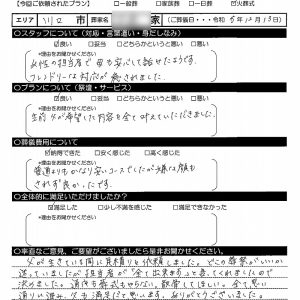 【今回ご依頼されたプラン】 □一般葬 □家族葬 □一日葬 ☑火葬式
エリア 川口市 葬家名 家 (ご葬儀日・令和5年12月13日)
○スタッフについて(対応・言葉遣い・身だしなみ)
☑良い □妥当 □どちらかというと悪い □悪い
理由をお聞かせください。
女性の担当者で母も安心して話せたようです。
フレンドリーな対応が癒されました。
○プランについて(祭壇・サービス)
☑良い □妥当 □どちらかというと悪い □悪い
理由をお聞かせください。
生前父が希望した内容を全て叶えていただきました。
○葬儀費用について
☑納得できた □安く感じた □高く感じた
理由をお聞かせください。
普通よりもかなり安いコースでしたが嫌な顔も
されず良かったです。
○全体的に満足いただけましたか?
☑満足した □少し不満を感じた □満足できなかった
理由をお聞かせください。
○率直なご意見、ご要望がございましたら是非お聞かせください。
父が生きている間に見積りを依頼しました。どこの葬祭がいいか
迷っていましたが担当者が"全て出来ます"と書いてくれましたので
決めました。通夜も葬式もやらない、散骨してほしい。全て思い
通りに進み、父も満足だと思います。ありがとうございました。